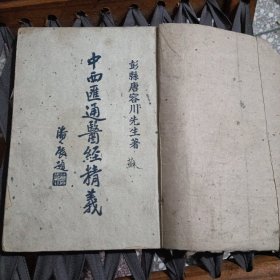 彭縣唐容川先生著
蘇
中西匯通醫經精義